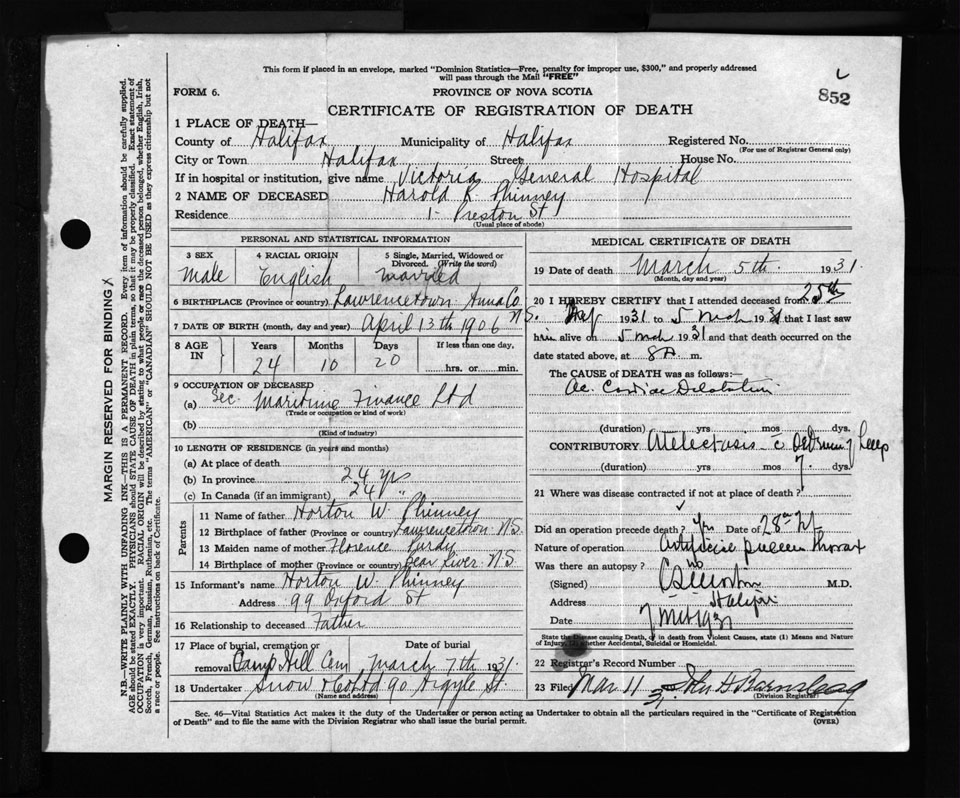 This form if placed in an envelope, marked "Dominion Statistics—Free, penalty for improper use, $300," and properly addressed
will pass through the Mail "FREE"
FORM 6.
PROVINCE OF NOVA SCOTIA
852
CERTIFICATE OF REGISTRATION OF DEATH
1 PLACE OF DEATH—
County of Halifax Municipality of Halifax Registered No.
(For use of Registrar General only)
City or Town Halifax Street House No.
If in hospital or institution, give name Victoria General Hospital
2 NAME OF DECEASED Harold R. Phinney
Residence 1- Preston St
(Usual place of abode)
PERSONAL AND STATISTICAL INFORMATION
3 SEX 4 RACIAL ORIGIN 5 Single, Married, Widowed or Divorced. (Write the word)
Male English Married
6 BIRTHPLACE (Province or country) Lawrencetown Anna Co. N.S.
7 DATE OF BIRTH (month, day and year) April 13th 1906
8 AGE IN Years Months Days If less than one day,
24 10 20 hrs. or min.
9 OCCUPATION OF DECEASED
(a) Sec. Maritime Finance Ltd
(Trade or occupation or kind of work)
(b)
(Kind of industry)
10 LENGTH OF RESIDENCE (in years and months)
(a) At place of death
(b) In province 24 yrs
(c) In Canada (if an immigrant) 24 "
Parents
11 Name of father Horton W. Phinney
12 Birthplace of father (Province or country) Lawrencetown N.S.
13 Maiden name of mother Florence Purdy
14 Birthplace of mother (Province or country) Bear River N.S.
15 Informant's name Horton W. Phinney
Address 99 Oxford St
16 Relationship to deceased Father
17 Place of burial, cremation or removal Date of burial
Camp Hill Cem March 7th 1931.
18 Undertaker Snow & Co Ltd 90 Argyle St.
(Name and address)
MEDICAL CERTIFICATE OF DEATH
19 Date of death March 5th. 1931.
(Month, day and year)
20 I HEREBY CERTIFY that I attended deceased from 25th
1931 to 5 mch 1931 that I last saw
him alive on 5 mch 1931 and that death occurred on the
date stated above, at 8 A. m.
The CAUSE OF DEATH was as follows:—
Ac. Cardiac Dilatation
(duration) yrs mos dys.
CONTRIBUTORY Atelectasis c of lung
(duration) yrs mos 7. dys.
21 Where was disease contracted if not at place of death?
Did an operation precede death? Yes Date of 28th
Nature of operation Artificial pneumothorax
Was there an autopsy? no
(Signed) M.D.
Address Halifax
Date 7 Mch 1931
State the Disease causing Death, or in death from Violent Causes, state (1) Means and Nature
of Injury, (2) whether Accidental, Suicidal or Homicidal.
22 Registrar's Record Number
23 Filed Mar 11 31. John
(Division Registrar)
Sec. 46—Vital Statistics Act makes it the duty of the Undertaker or person acting as Undertaker to obtain all the particulars required in the "Certificate of Registration
of Death" and to file the same with the Division Registrar who shall issue the burial permit.
(OVER)
MARGIN RESERVED FOR BINDING
N.B.—WRITE PLAINLY WITH UNFADING INK—THIS IS A PERMANENT RECORD. Every item of information should be carefully supplied.
AGE should be stated EXACTLY. PHYSICIANS should STATE CAUSE OF DEATH in plain terms, so that it may be properly classified. Exact statement of
OCCUPATION is very important. RACIAL ORIGIN will be described by stating to what people or race the deceased person belonged, whether English, Irish,
Scotch, French, German, Russian, Ruthenian, etc. The terms "AMERICAN" or "CANADIAN" SHOULD NOT BE USED as they express citizenship but not
a race or people. See instructions on back of Certificate.